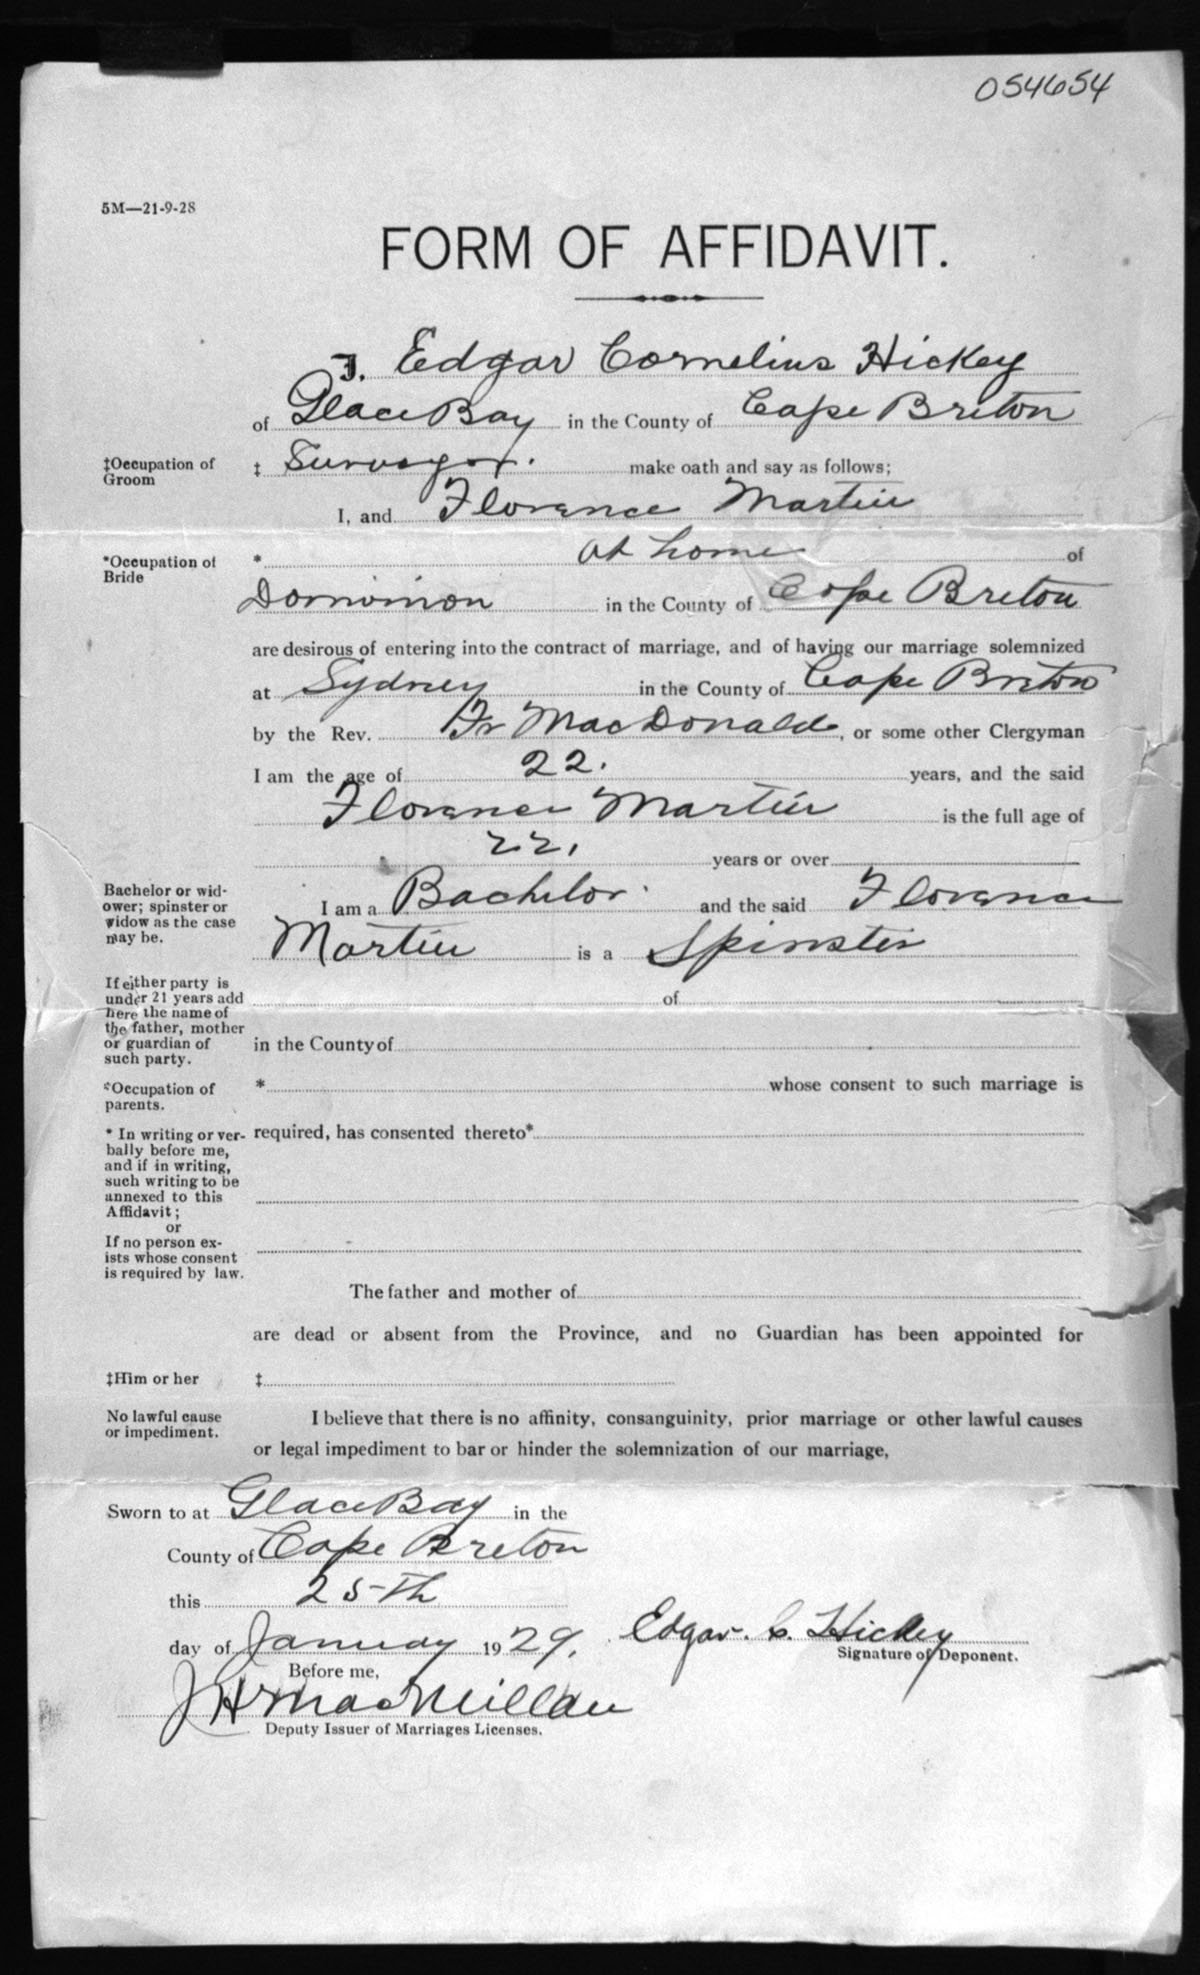 054654
5M—21-9-28
FORM OF AFFIDAVIT.
I, Edgar Cornelius Hickey
of Glace Bay in the County of Cape Breton
‡Occupation of Groom
‡ Surveyor. make oath and say as follows;
I, and Florence Martin
*Occupation of Bride
* at home of
Dominion in the County of Cape Breton
are desirous of entering into the contract of marriage, and of having our marriage solemnized
at Sydney in the County of Cape Breton
by the Rev. Fr MacDonald, or some other Clergyman
I am the age of 22. years, and the said
Florence Martin is the full age of
22, years or over
Bachelor or wid-
ower; spinster or
widow as the case
may be.
I am a Bachelor. and the said Florence
Martin is a Spinster
If either party is
under 21 years add
here the name of
the father, mother
or guardian of
such party.
of
in the County of
*Occupation of
parents.
* whose consent to such marriage is
* In writing or ver-
bally before me,
and if in writing,
such writing to be
annexed to this
Affidavit;
or
If no person ex-
ists whose consent
is required by law.
required, has consented thereto*
The father and mother of
are dead or absent from the Province, and no Guardian has been appointed for
‡Him or her ‡
No lawful cause
or impediment.
I believe that there is no affinity, consanguinity, prior marriage or other lawful causes
or legal impediment to bar or hinder the solemnization of our marriage,
Sworn to at Glace Bay in the
County of Cape Breton
this 25th
day of January 1929.
Edgar. C. Hickey
Signature of Deponent.
Before me,
J H MacMillan
Deputy Issuer of Marriages Licenses.